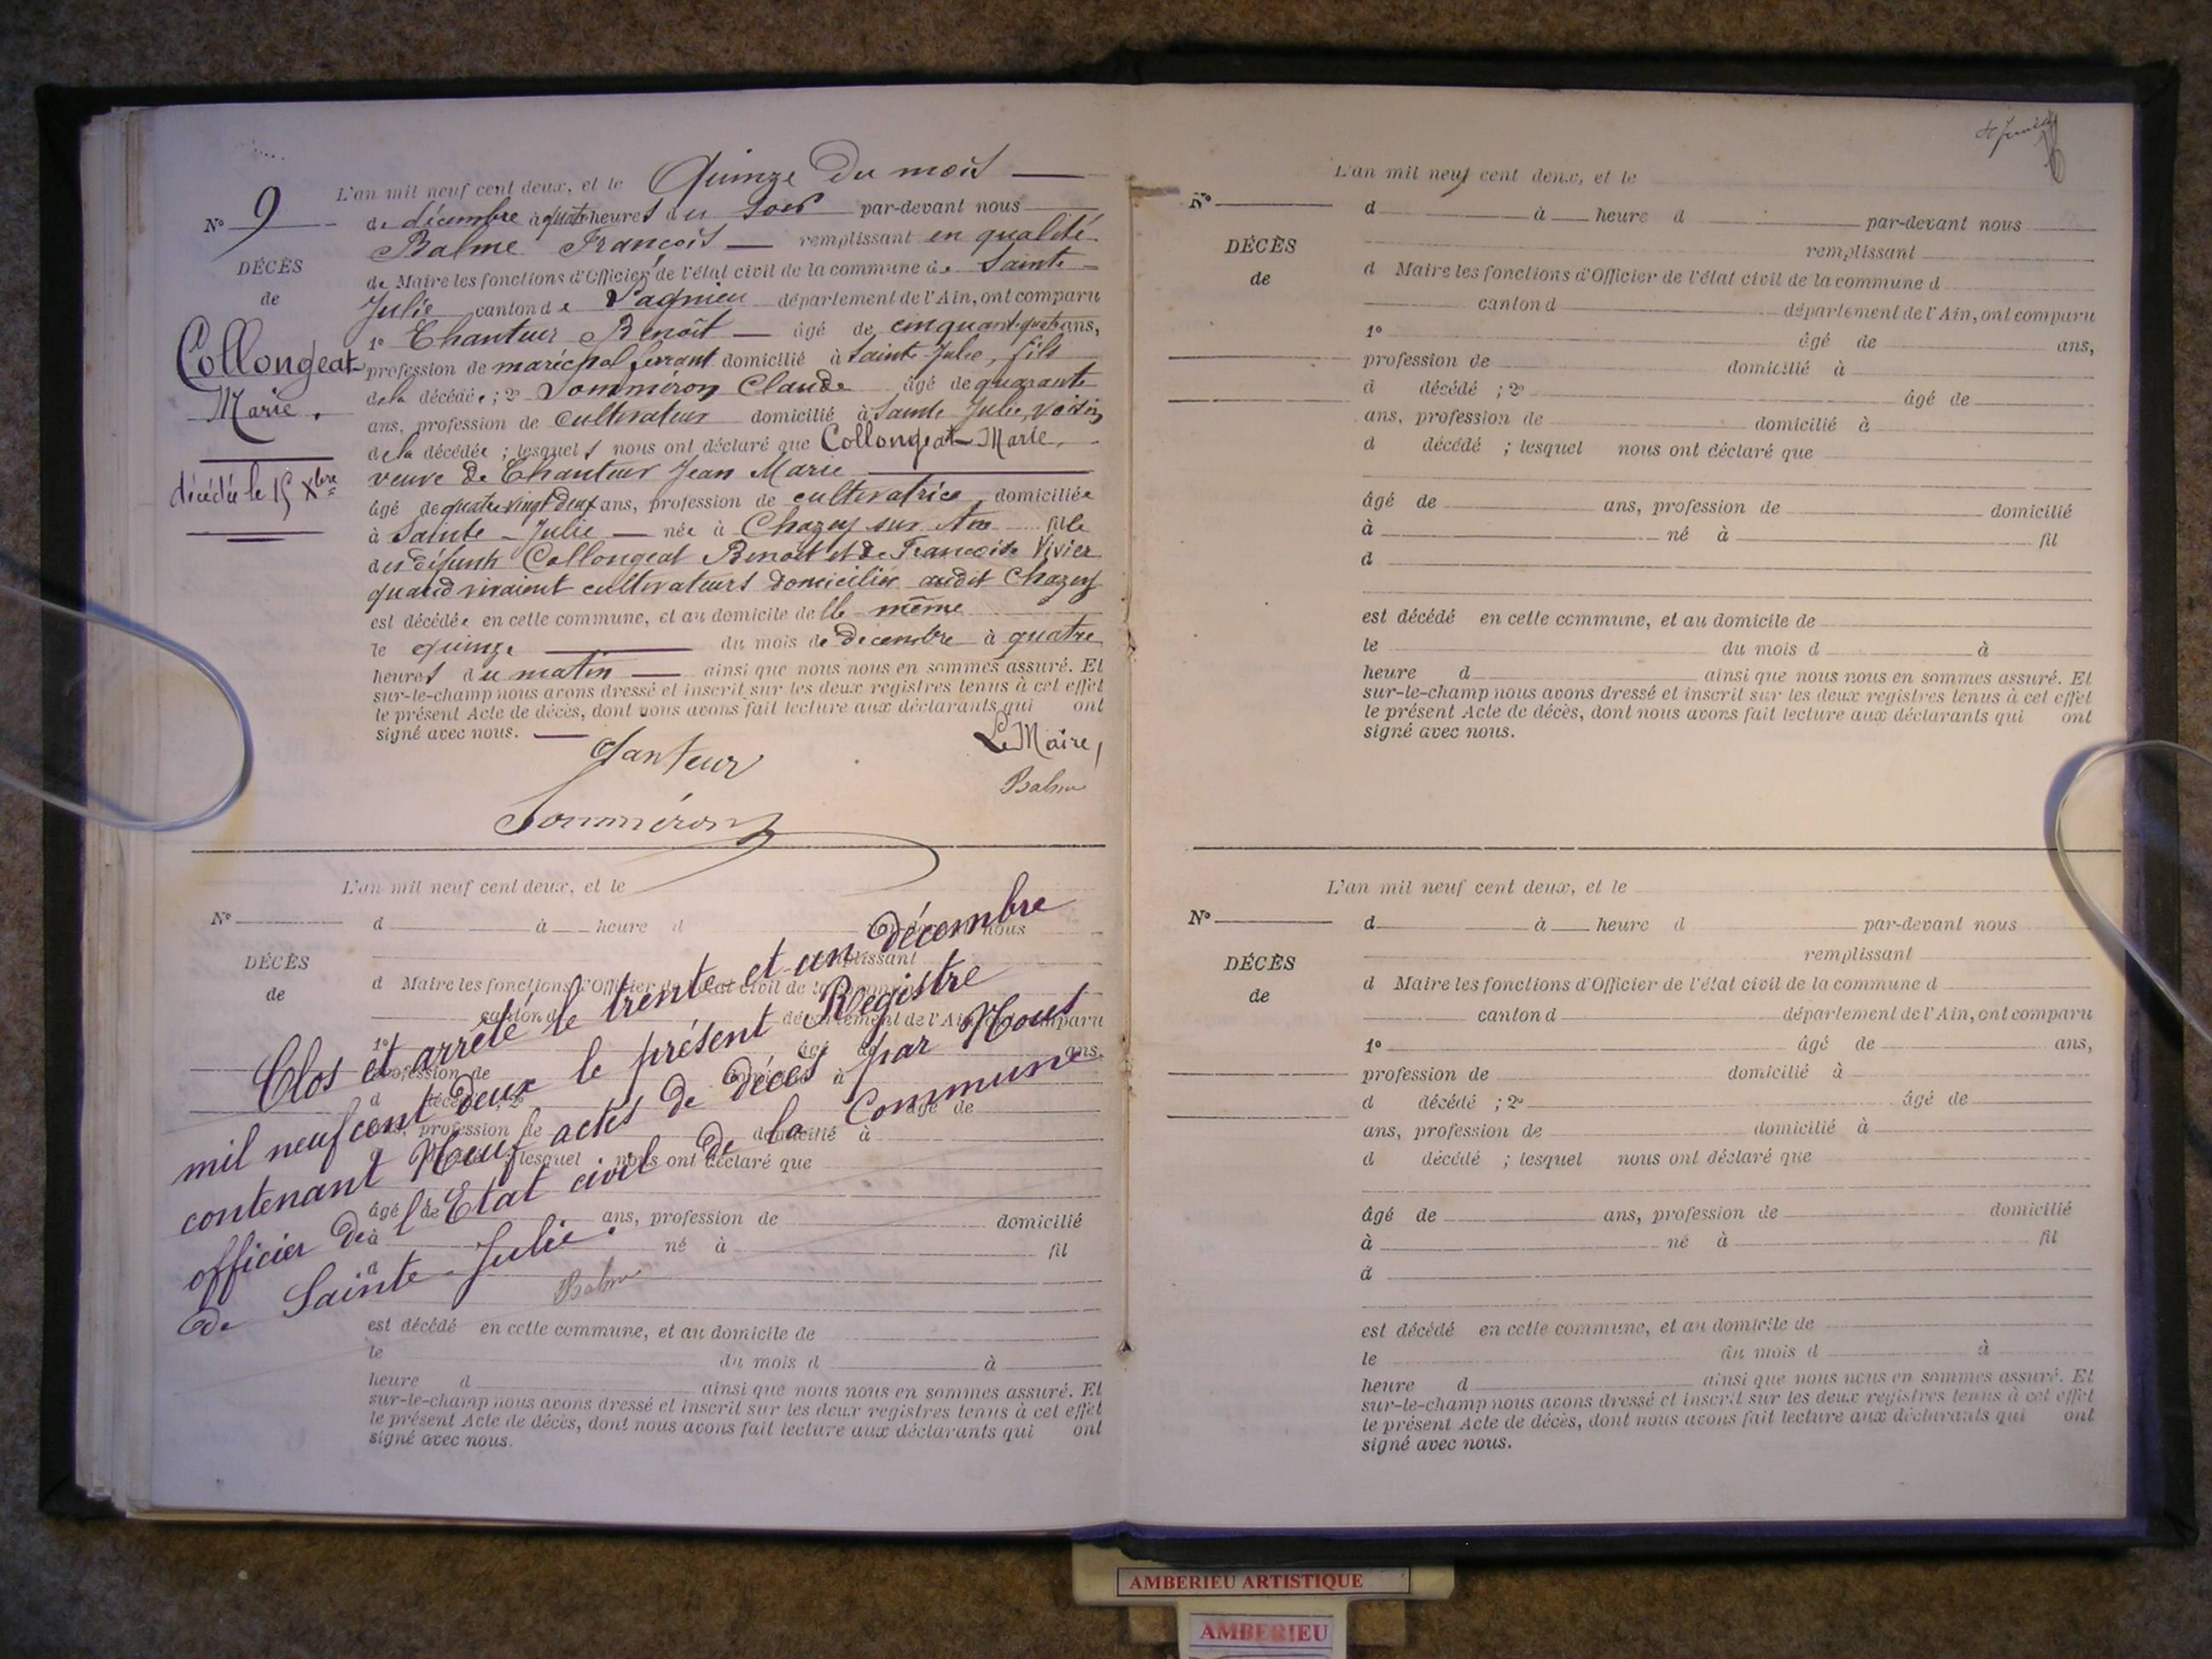 L'an mil neuf cent deux, et le Quinze du mois
N° 9
de décembre à quatre heures du soir par-devant nous
Balme François remplissant en qualité
DÉCÈS
de Maire les fonctions d'Officier de l'état civil de la commune de Sainte-
de
Julie canton de Lagnieu département de l'Ain, ont comparu
1° Chanteur Benoît âgé de cinquante-quatre ans,
Collongeat
profession de maréchal ferrant domicilié à Sainte-Julie, fils
de la décédée ; 2° Sommeron Claude âgé de quarante
Marie.
ans, profession de cultivateur domicilié à Sainte Julie, voisin
de la décédée ; lesquels nous ont déclaré que Collongeat Marie,
décédée le 15 Xbre
veuve de Chanteur Jean Marie
âgé de quatre vingt deux ans, profession de cultivatrice, domiciliée
à Sainte-Julie née à Chazey sur Ain fille
des défunts Collongeat Benoît et de Françoise Vivier
quand vivaient cultivateurs domiciliés audit Chazey
est décédée en cette commune, et au domicile de lle-même
le quinze du mois de décembre à quatre
heures du matin ainsi que nous nous en sommes assuré. Et
sur-le-champ nous avons dressé et inscrit sur les deux registres tenus à cet effet
le présent Acte de décès, dont nous avons fait lecture aux déclarants qui ont
signé avec nous.
Le Maire,
Balme
Sommeron
L'an mil neuf cent deux, et le
N° d à heure d
DÉCÈS
de
d Maire les fonctions d'Officier de l'état civil de la commune
canton d département de l'Ain, ont comparu
1° âgé de ans,
profession de domicilié à
d décédé ; 2° âgé de
ans, profession de domicilié à
d décédé ; lesquel nous ont déclaré que
âgé de ans, profession de domicilié
à né à fil
d
est décédé en cette commune, et au domicile de
le du mois d à
heure d ainsi que nous nous en sommes assuré. Et
sur-le-champ nous avons dressé et inscrit sur les deux registres tenus à cet effet
le présent Acte de décès, dont nous avons fait lecture aux déclarants qui ont
signé avec nous.
Clos et arrêté le trente et un décembre
mil neuf cent deux le présent Registre
contenant Neuf actes de décès par Nous
officier de l'Etat civil de la Commune
de Sainte-Julie.
Balme
L'an mil neuf cent deux, et le
N° d à heure d par-devant nous
DÉCÈS
remplissant
de
d Maire les fonctions d'Officier de l'état civil de la commune d
canton d département de l'Ain, ont comparu
1° âgé de ans,
profession de domicilié à
d décédé ; 2° âgé de
ans, profession de domicilié à
d décédé ; lesquel nous ont déclaré que
âgé de ans, profession de domicilié
à né à fil
d
est décédé en cette commune, et au domicile de
le du mois d à
heure d ainsi que nous nous en sommes assuré. Et
sur-le-champ nous avons dressé et inscrit sur les deux registres tenus à cet effet
le présent Acte de décès, dont nous avons fait lecture aux déclarants qui ont
signé avec nous.
L'an mil neuf cent deux, et le
N° d à heure d par-devant nous
remplissant
DÉCÈS
de
d Maire les fonctions d'Officier de l'état civil de la commune d
canton d département de l'Ain, ont comparu
1° âgé de ans,
profession de domicilié à
d décédé ; 2° âgé de
ans, profession de domicilié à
d décédé ; lesquel nous ont déclaré que
âgé de ans, profession de domicilié
à né à fil
d
est décédé en cette commune, et au domicile de
le du mois d à
heure d ainsi que nous nous en sommes assuré. Et
sur-le-champ nous avons dressé et inscrit sur les deux registres tenus à cet effet
le présent Acte de décès, dont nous avons fait lecture aux déclarants qui ont
signé avec nous.
AMBERIEU ARTISTIQUE
AMBERIEU